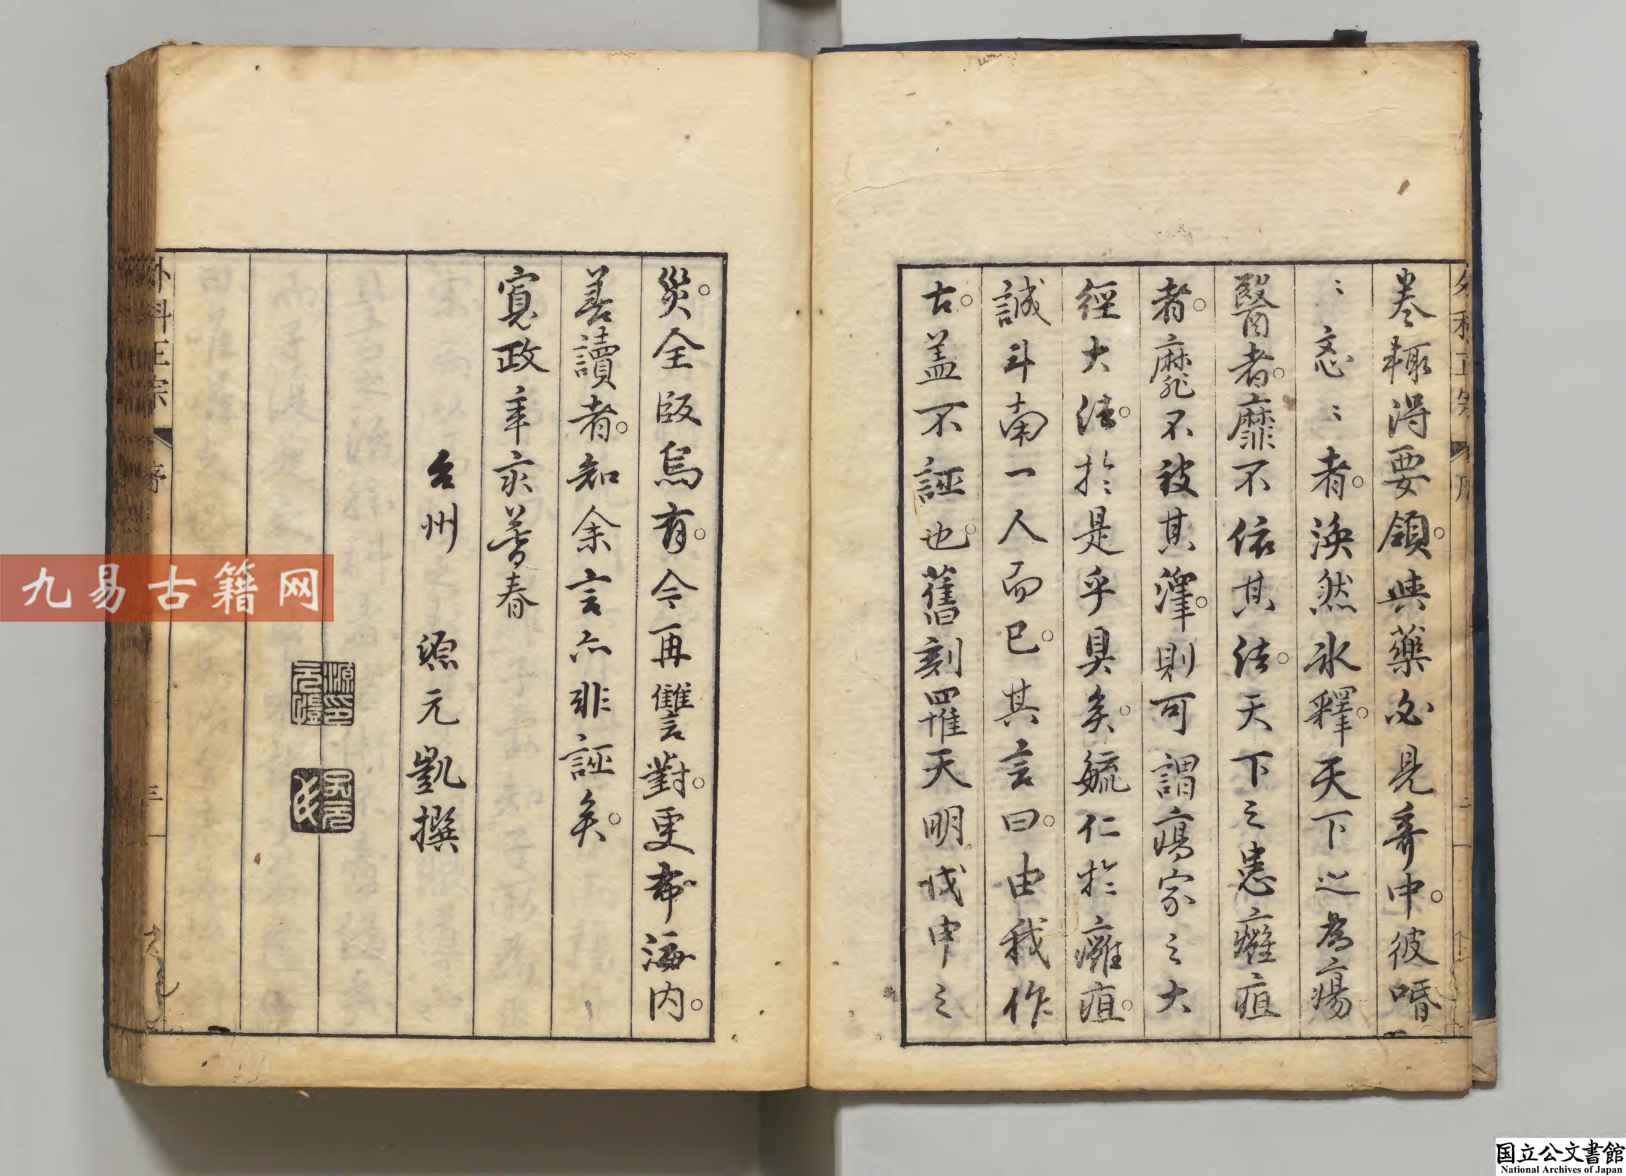 卷輙得要領與藥必見弃中彼唔
〻忞〻者渙然氷釋天下之為瘍
醫者靡不依其法天下之患癰疽
者靡不被其澤則可謂瘍家之大
經大法於是乎具矣毓仁於癰疽
誠斗南一人而已其言曰由我作
古盖不誣也舊刻罹天明戊申之
災全版烏有今再讐對更布海內
善讀者知余言亦非誣矣
寬政辛亥暮春
台州 源元凱撰
外科正宗 序 三
九易古籍网
国立公文書館
National Archives of Japan